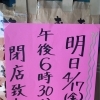 明日4/17(金)
午後6時30分
閉店致